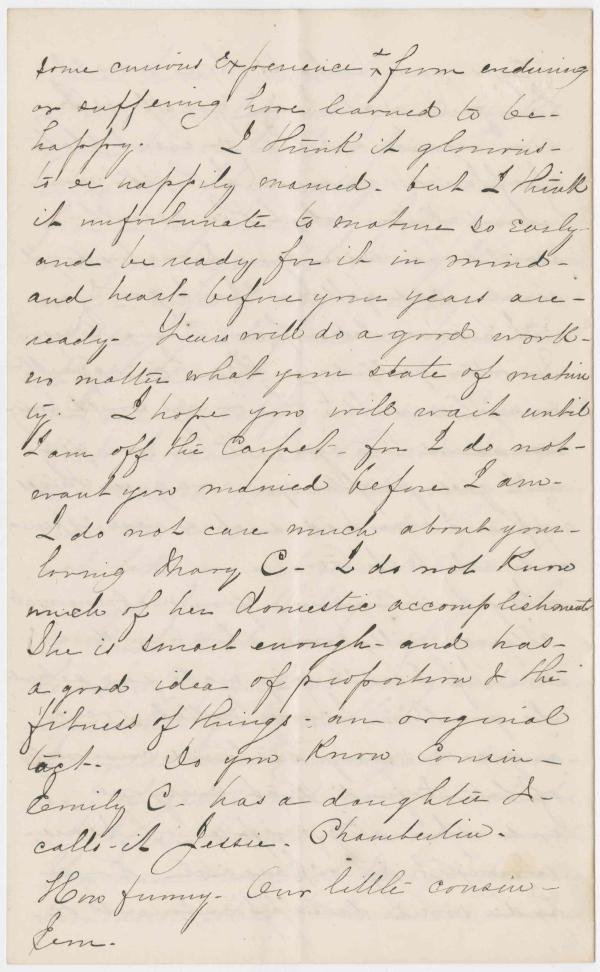 some curious Experience & from enduring
or suffering have learned to be-
happy. I think it glorious-
to be happily married- but I think
it unfortunate to mature so Early-
and be ready for it in mind-
and heart- before your years are-
ready- Years will do a good work-
no matter what your state of matur
ity. I hope you will wait until
I am off the Carpet- for I do not-
want you married before I am-
I do not care much about your-
loving Mary C- I do not Know
much of her domestic accomplishments
She is smart enough- and has-
a good idea of proportion & the
fitness of things- an original
tact- Do you Know Cousin-
Emily C- has a daughter &-
calls-it Jessie- Chamberlin-
How funny- Our little cousin-
Jem-